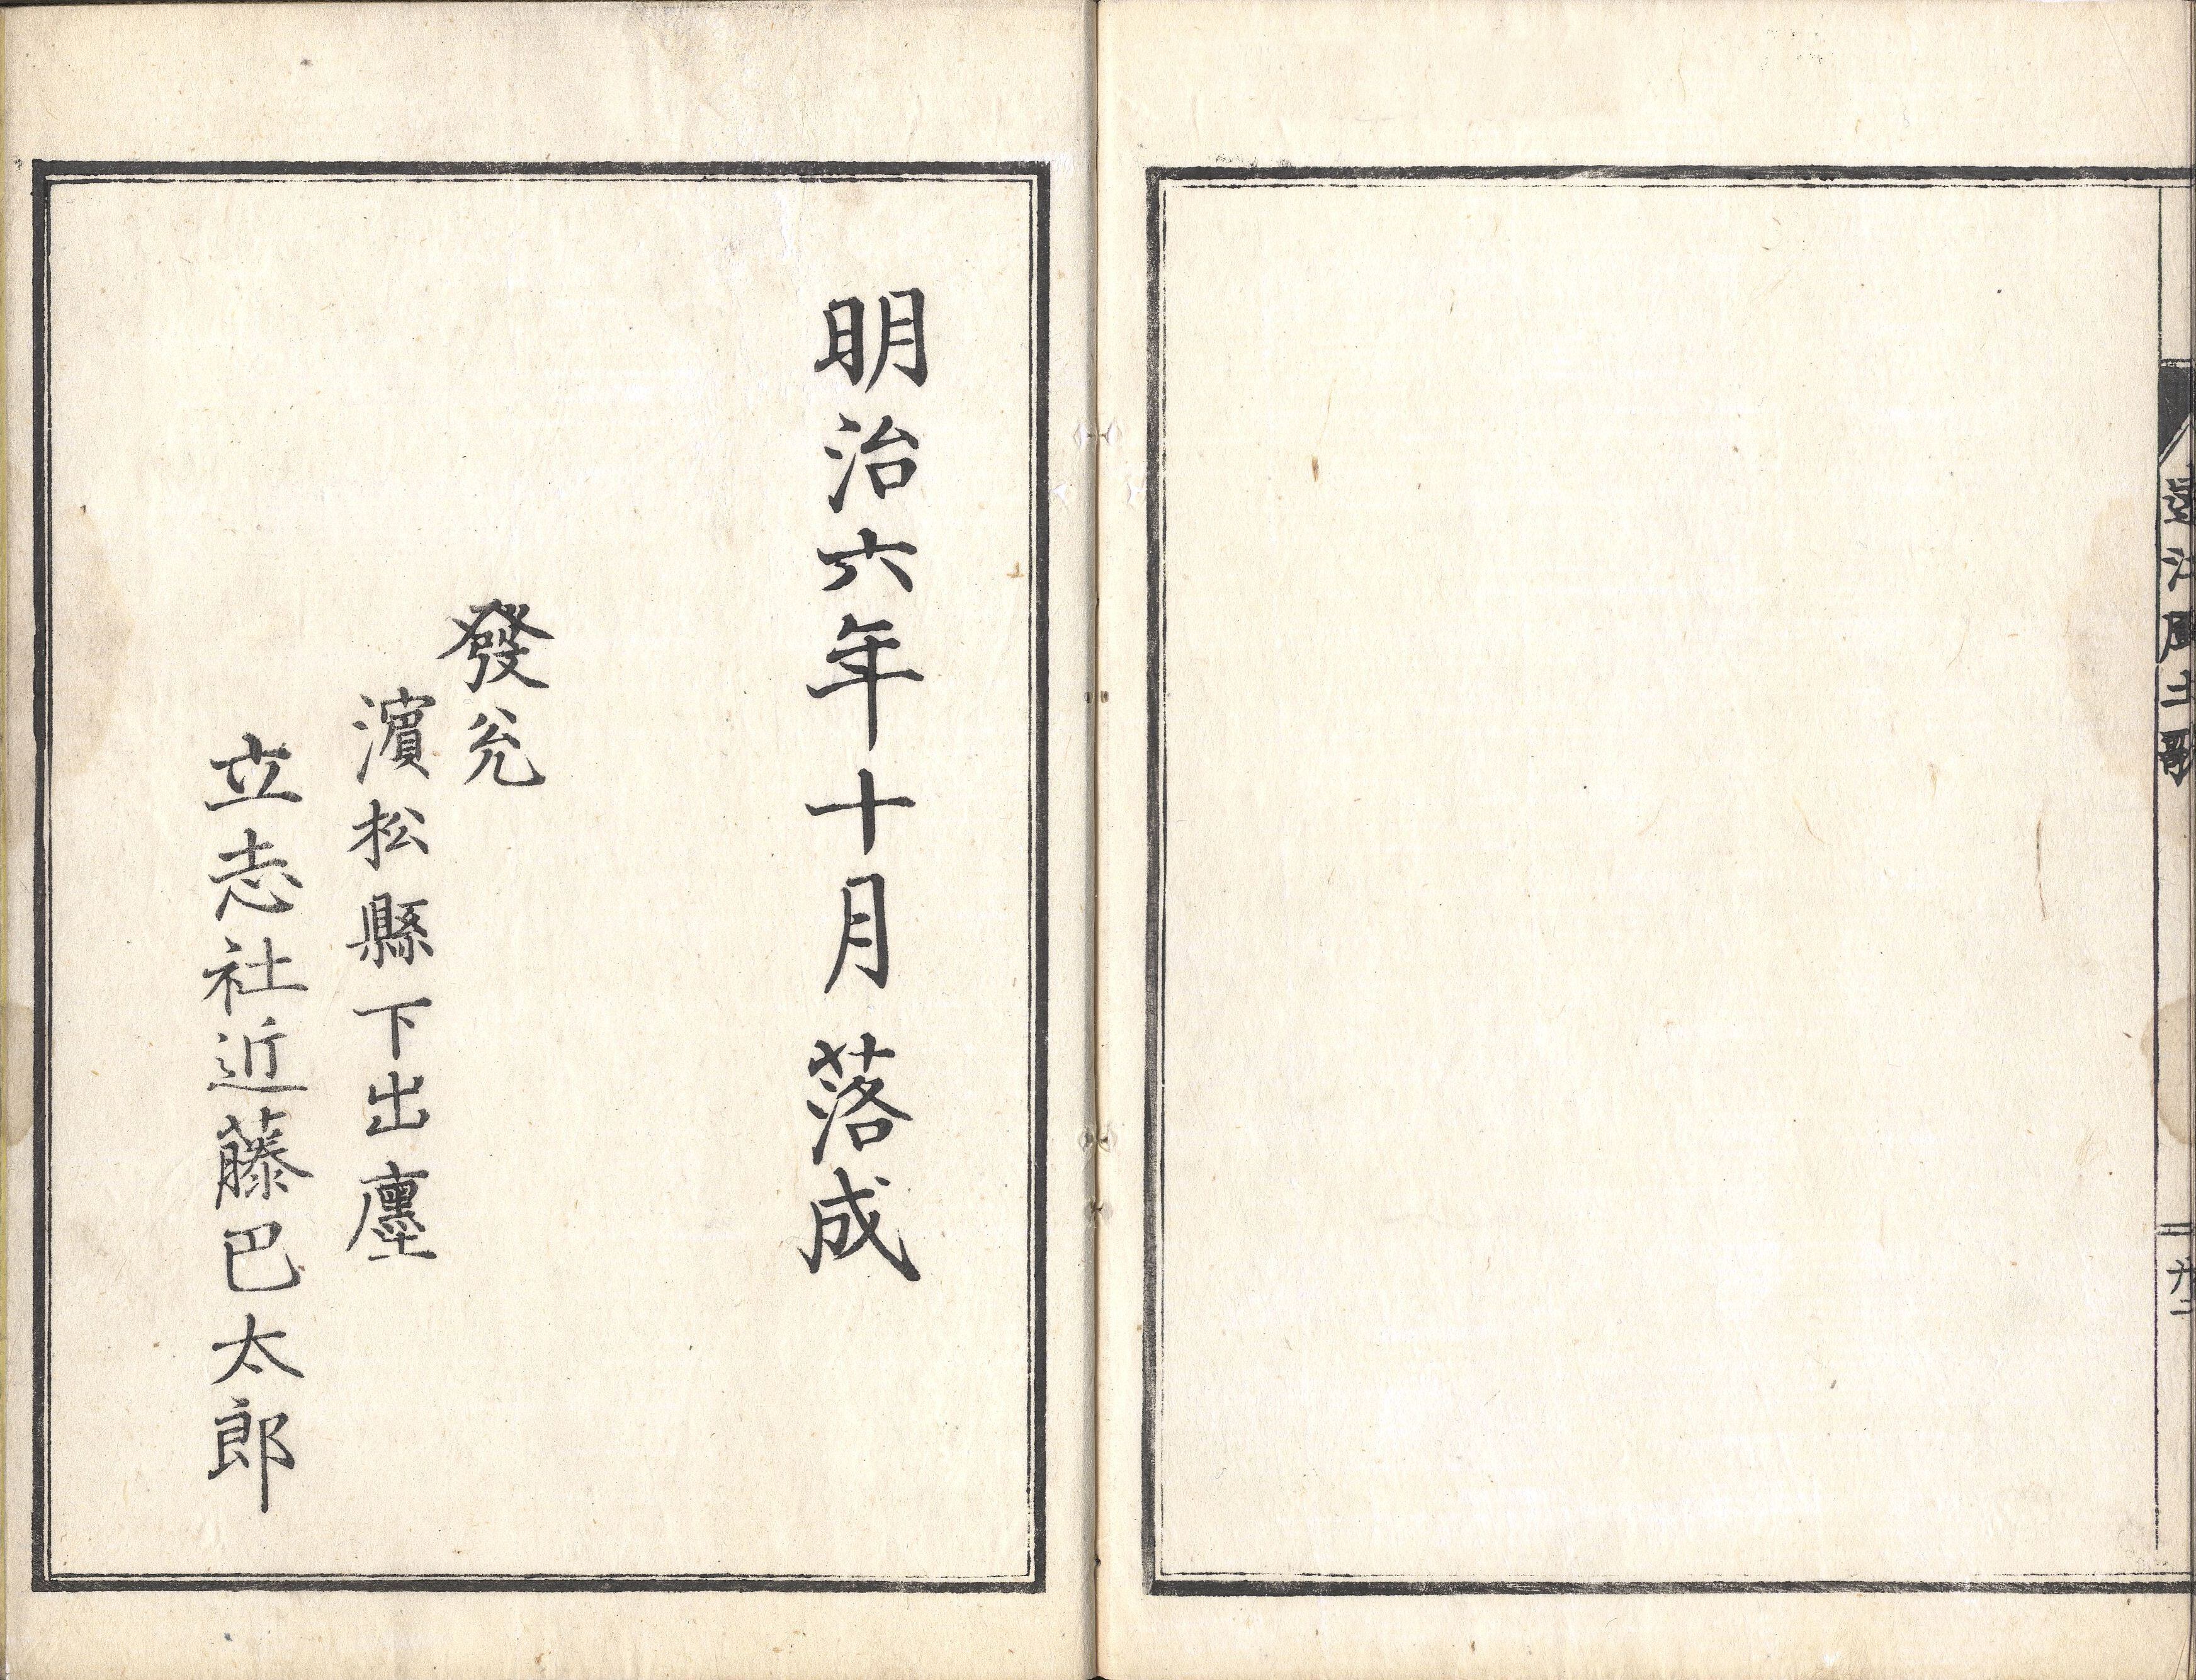 明治六年十月落成
發兊
濱松縣下出廛
立志社近藤巴太郎